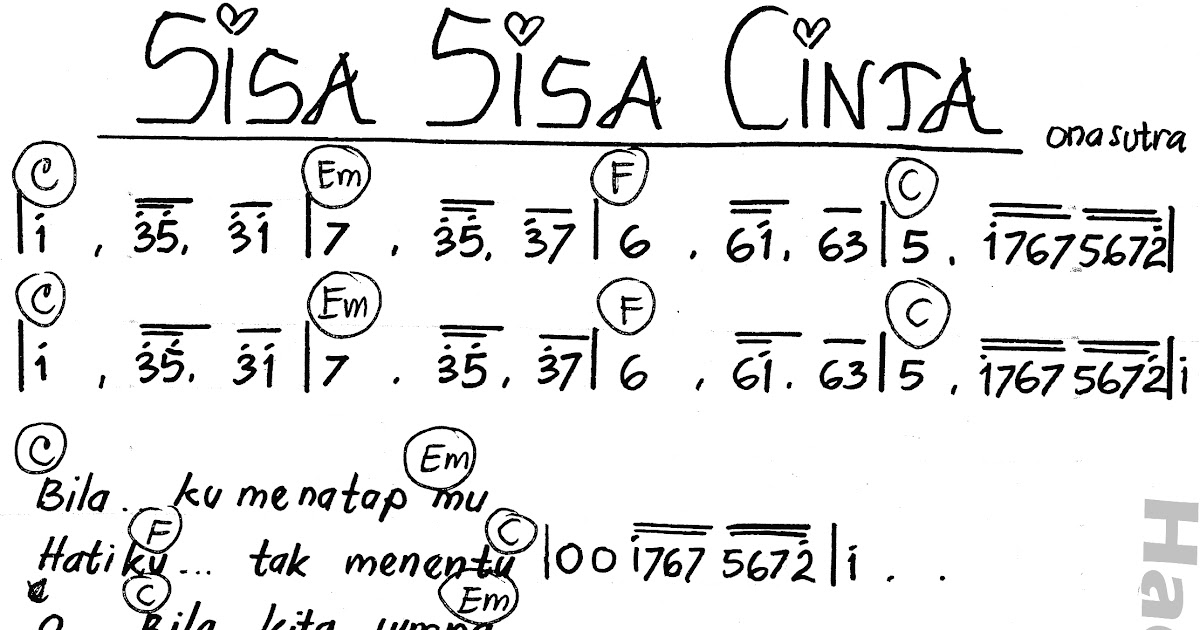 SISA SISA CINTA
ona sutra
C Em F C
|i̇ , 3̇5̇. 3̇i̇ |7 . 3̇5̇. 3̇7| 6 . 6i̇. 63|5 . i̇767 5672̇|
C Em F C
|i̇ , 3̇5̇. 3̇i̇ |7 . 3̇5̇. 3̇7| 6 , 6i̇. 63|5 . i̇767 5672̇|i̇
C Em
Bila... ku menatap mu
F C
Hatiku... tak menentu |00 i̇767 5672̇|i̇ . .
C Em
Bila kita